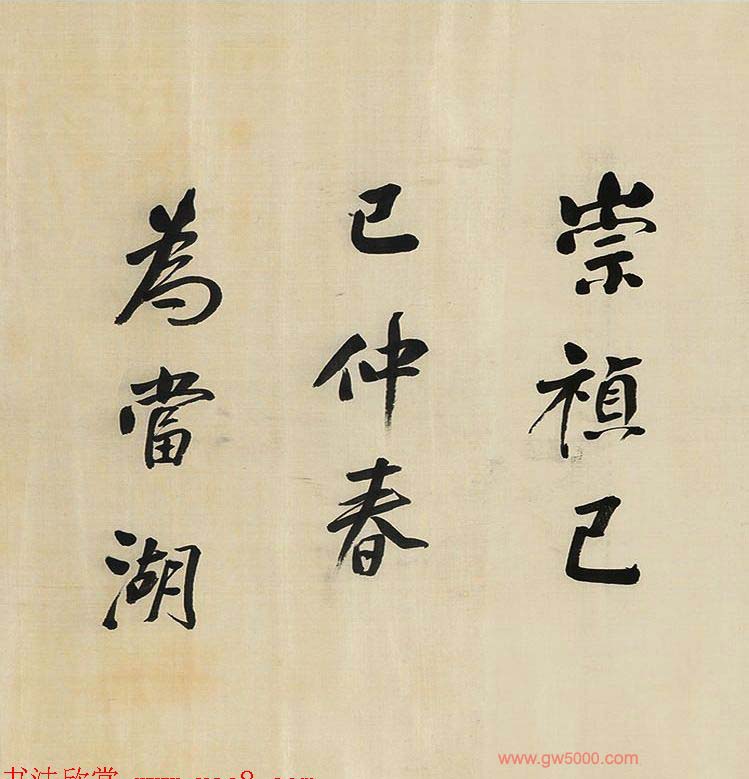 崇禎己
巳仲春
為當湖
www.gw5000.com
书法欣赏 www.yac8.com